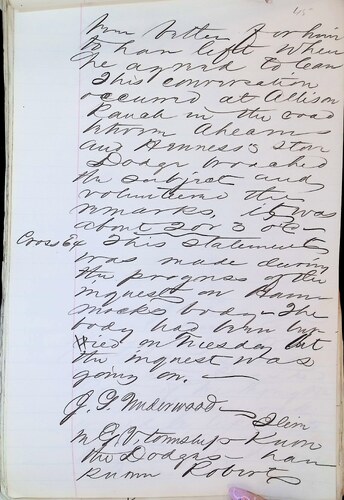 45
been better for him
to han left when
he agreed to lean
This conversation
occured at Allison
Ranch in the road
between Ahearns
and Henness's store
Dodge broached
the subject and
volunteered the
remarks, it was
about 2 or 3 oc -
Cross Ex This statement
was made during
the progress of the
inquest on Ham
mocks body - The
body had been bur
ried on Tuesday but
the inquest was
going on. -
J. G. Underwood -
I live
in G. V. township Know
the Dodges - han
known Roberts